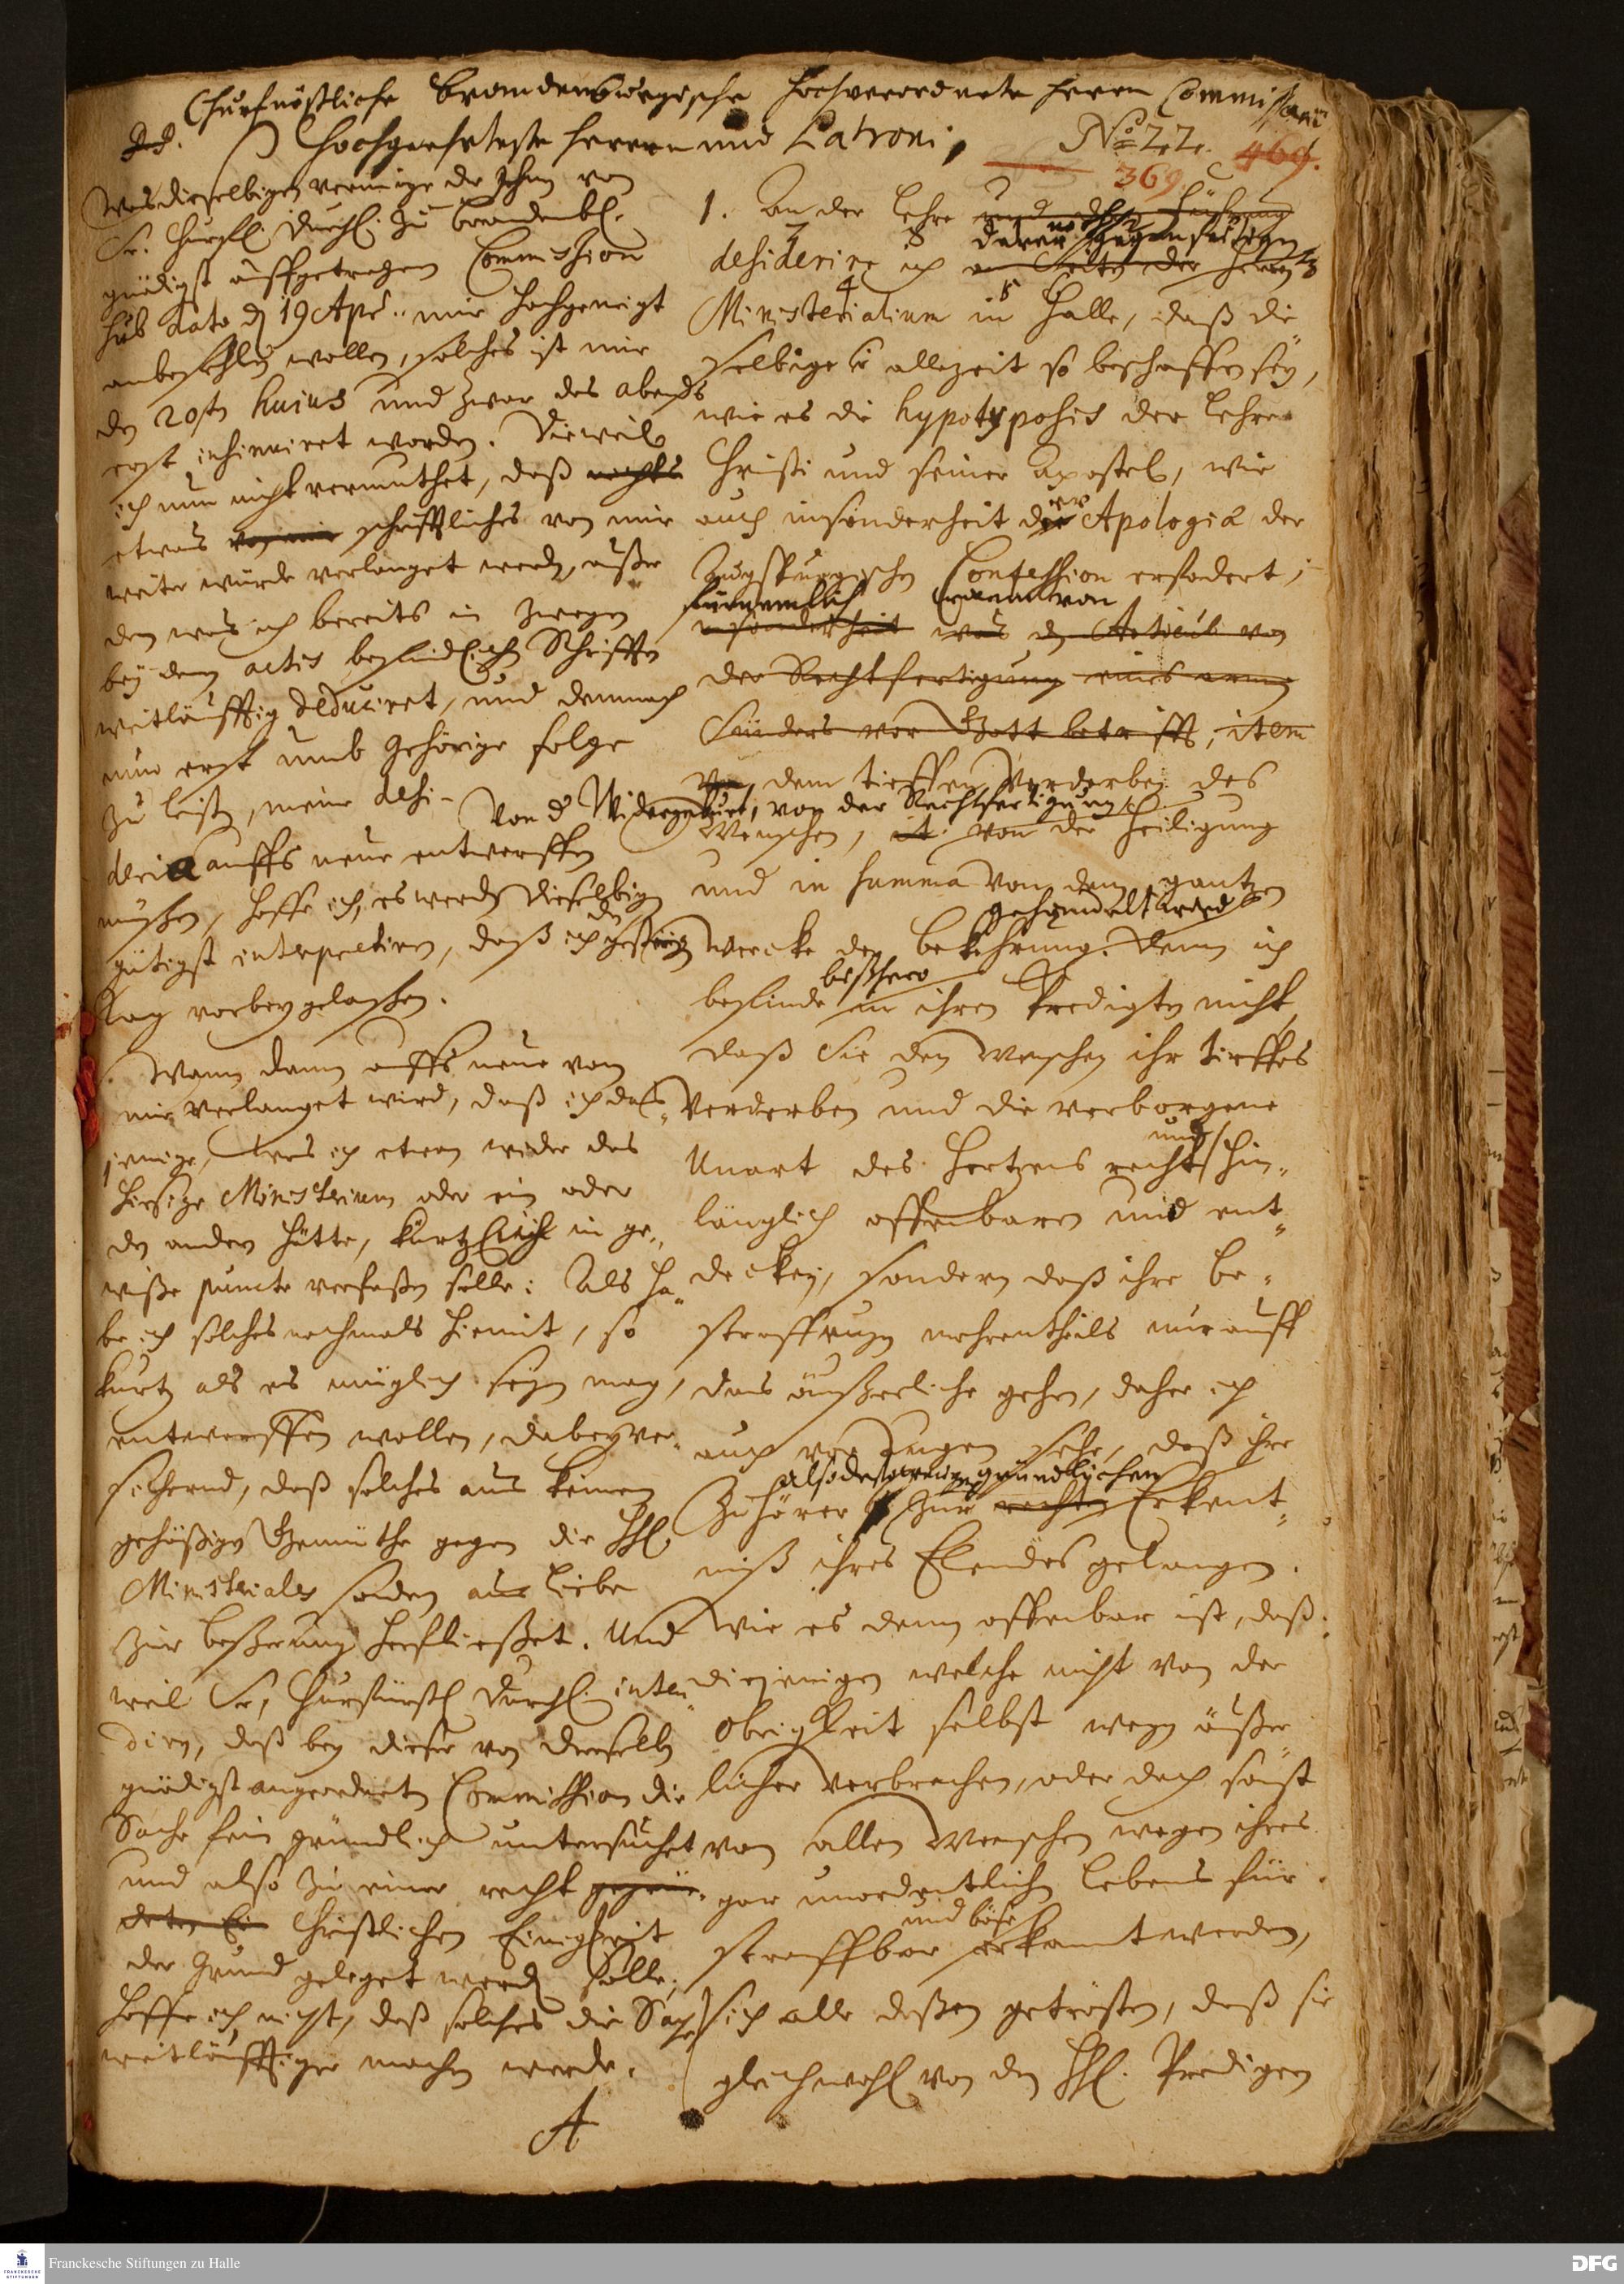 Churfürstliche Brandenburgische Hochverordnete Herren Commissarii
Hochgeehrteste Herren und Patroni,
No 22.
469.
369
Was dieselbigen vermöge der Ihnen von
Sr. Churfl. Durchl. zu Brandenbl.
gnädigst auffgetragen Commission
sub dato d 19 Apr. mir hochgeneigt
anbefehlen wollen, solches ist mir
den 20sten huius und zwar des abends
erst insinuiret worden. Dieweil
ich nun nicht vermuthet, daß nichts
etwas von mir schrifftliches von mir
weiter würde verlanget werden, außer
dem was ich bereits in zweyen
bey den actis befindlichen Schrifften
weitläufftig deduciret, und demnach
nun erst umb gehörige folge
zu leisten, meine desi-
deria auffs neue entwerffen
müßen, hoffe ich, es werden dieselbigen
gütigst interpretiren, daß ich den gestrigen
Tag vorbey gelaßen.
Wann dann auffs neue von
mir verlanget wird, daß ich das-
jenige, was ich etwan wider das
hiesige Ministerium oder ein oder
den andern hätte, kürtzlich in ge-
wiße puncte verfaßen solle: Als ha-
be ich solches nochmals hiemit, so
kurtz als es müglich seyn mag,
entwerffen wollen, dabey ver-
sichernd, daß solches aus keinem
gehäßigen Gemüthe gegen die HH.
Ministeriales sondern aus Liebe
zur beßerung herfließet. Und
weil Sr. Churfürstl. Durchl. inten-
diren, daß bey dieser von deroselben
gnädigst angeordneten Commission die
Sache fein gründlich untersuchet
und also zu einer recht gegrün-
deten Ei Christlichen Einigkeit
der Grund geleget werden solle;
hoffe ich nicht, daß solches die Sache
weitläufftiger machen werde.
A
1. An der Lehre und deßen Führung
desiderire ich an Seiten der Herren
Ministerialium in Halle, daß die-
selbige nicht allezeit so beschaffen sey,
wie es die hypotyposis der Lehre
Christi und seiner Apostel, wie
auch insonderheit der Apologia der
Augspurgischen Confession erfodert,
fürnemlich wenn von
insonderheit was den Articul von
der Rechtfertigung eines armen
Sünders vor Gott betrifft, item
von dem tieffen Verderben des
Von der Widergeburt, von der Rechtfertigung,
Menschen, it. von der Heiligung
und in summa von dem gantzen
gehandelt wird
Wercke der bekehrung. Denn ich
bißhero
befinde in ihren Predigten nicht,
daß Sie den Menschen ihr tieffes
Verderben und die verborgene
und
Unart des Hertzens recht hin-
länglich offenbaren und ent-
decken, sondern daß ihre be-
straffungen mehrentheils nur auff
das äußerliche gehen, daher ich
auch vor Augen sehe, daß ihre
also desto weniger gründlichen
Zuhörer zur rechten Erkent-
niß ihres Elendes gelangen.
Wie es denn offenbar ist, daß
diejenigen welche nicht von der
Obrigkeit selbst wegen äußer-
licher Verbrechen, oder doch sonst
von allen Menschen wegen ihres
gar unordentlichen Lebens für
und böse
straffbar erkannt werden,
sich alle deßen getrösten, daß sie
gleichwohl von den HH. Predigern
Franckesche Stiftungen zu Halle
DFG